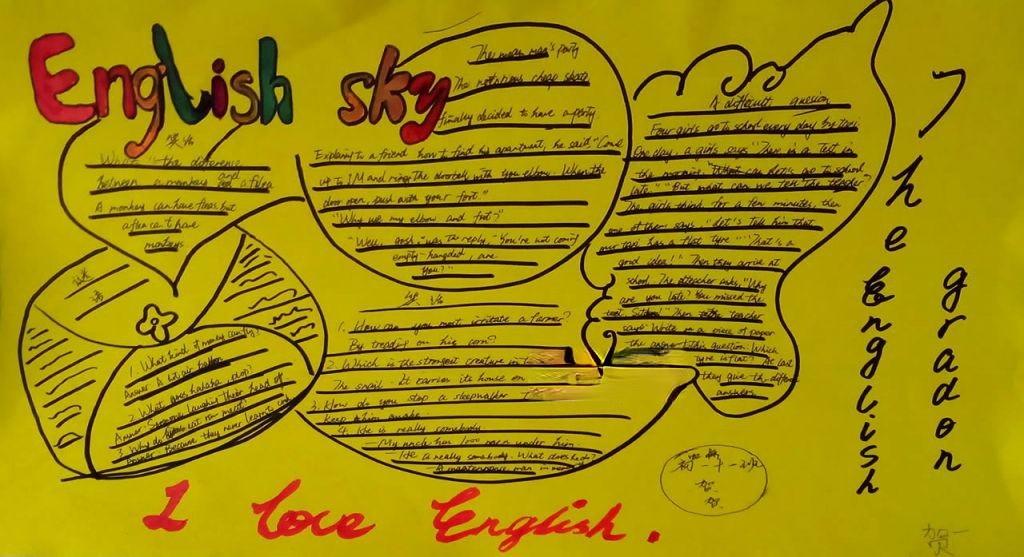 English sky
笑话
What the difference
Between a monkey and a flea
A monkey can have fleas, but
a flea can't have
monkeys
The mean man's party
The notorious cheap skate
finally decided to have a party.
Explaining to a friend how to find his apartment, he said "Come
up to 1M and ring the doorbell with you elbow. When the
door open, push with your foot."
"Why use my elbow and foot?"
"Well, gosh," was the reply, "You're not coming
empty-hangded, are
You?"
A difficult quesion
Four girls go to school every day by taxi.
One day, a girls says "There is a Test in
the morning. "What can
late." "But what can we tell the teacher?"
The girls think for a few minutes, then
one of them says. "Let's tell him that
our taxi has a flat tyre" "That's a
good idea!" Then they arrive at
school. The teacher asks, "Why
are you late? You missed the
test. Then the teacher
says "Write on a piece of paper
the question. Which
tyre is flat? At last
they give the different
answers.
笑话
1. How can you most irritate a farmer?
By treading on his corn?
2. Which is the strongest creature in
The snail. It carries its house on
3. How do you stop a sleepwalker
Keep him awake.
4. He is really somebody.
—My uncle has 1000 men under him.
—He is really somebody. What does he do?
—A maintenance man in
谜
语
1. What kind of money
Answer: A
2. What goes hahaha, plop?
Answer: Someone laughing their head off
3. Why do eat raw meat?
Answer: Because they never learnt to cook
The English
gradon
I love English.
一十一班
贺
贺
贺一